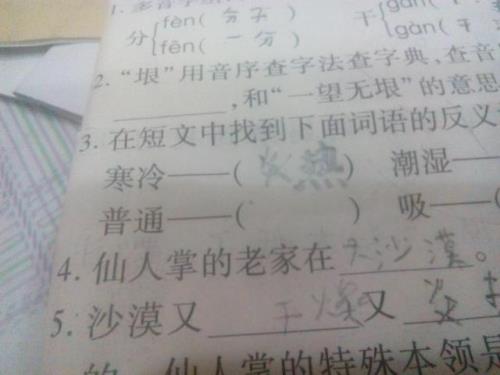 1. 多音字
分 fèn( 分子 ) 干 gàn(
fēn( 一分 ) gàn( 干
2. “垠”用音序查字法查字典，查音
，和“一望无垠”的意思
3. 在短文中找到下面词语的反义
寒冷——( 炎热 ) 潮湿——
普通——( ) 吸——(
4. 仙人掌的老家在 大沙漠 。
5. 沙漠又 干燥 又 炎
的 仙人掌的特殊本领是